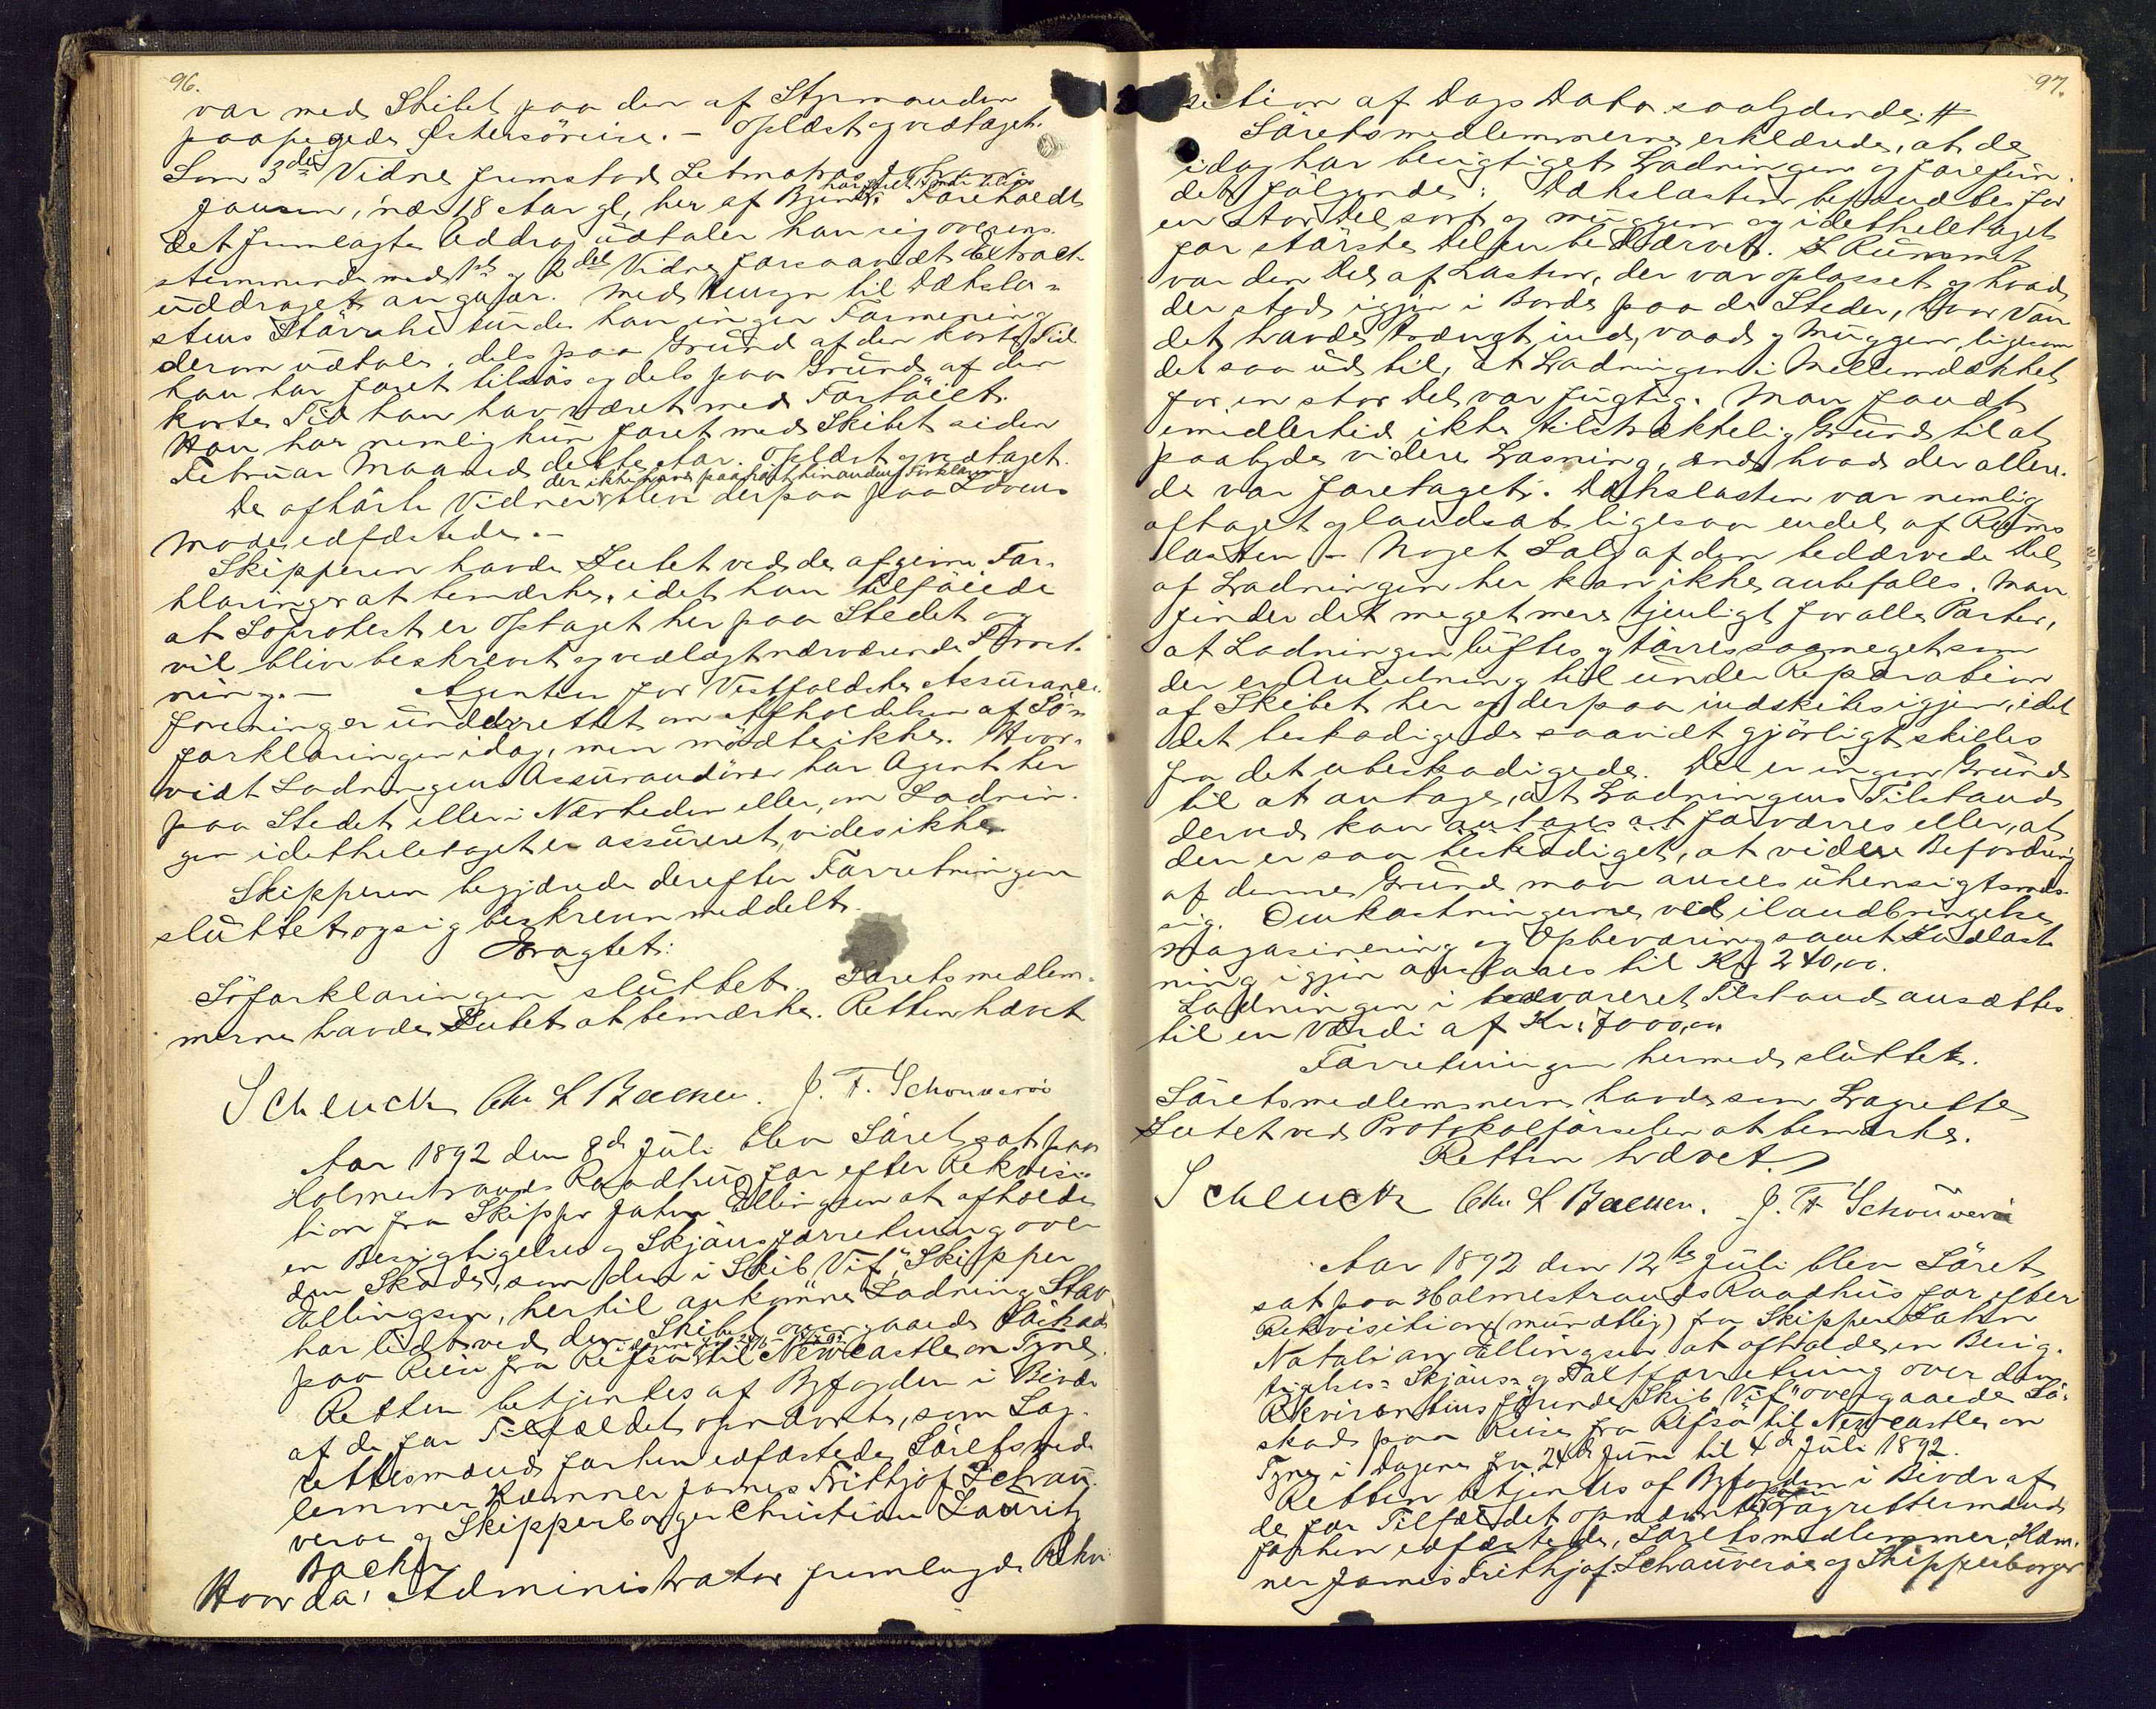 96.
var med Skibet paa den af Styrmanden
paapegede Östersöreise. – Oplæst og vedtaget.
Som 3die Vidne fremstod Letmatros
Jansen, nær 18 Aar gl, her af Byen. Foreholdt
det fremlagte Uddrag udtaler han sig overens-
stemmende med 1ste og 2det Vidne forsaavidt Extract-
uddraget angaar. Med Hensyn til Dækslas-
stens Störrelse turde han ingen Formening
derom udtale, dels paa Grund af den korte Tid
han har faret tilsös og dels paa Grund af den
korte Tid han har været med Fartöiet.
Han har nemlig kun faret med Skibet siden
Februar Maaned dette Aar. Oplæst og vedtaget.
der ikke havde paahört hinandens Forklaring
De afhörte Vidner blev derpaa paa Lovens
Mode edfæstede. –
Skipperen havde Intet ved de afgivne For-
klaringer at bemærke, idet han tilföiede
at Söprotest er optaget her paa Stedet og
vil blive beskrevet og vedlagt nærværende Forret-
ning. – Agenten for Vestfoldske Assurance-
foreninger underrettet om Afholdelsen af Sö-
forklaringen idag, men mödte ikke. Hvor-
vidt Ladningens Assurandörer har Agent her
paa Stedet eller i Nærheden eller, om Ladnin-
gen idetheletaget er assureret, vides ikke.
Skipperen begjærede derefter Forretningen
sluttet og sig beskreven meddelt.
Eragtet:
Söforklaringen sluttet. Sörets medlem-
merne havde Intet at bemærke. Retten hævet
Schenck Chr L Backer. J. F. Schouveröe
Aar 1892 den 8de Juli blev Söret sat paa
Holmestrands Raadhus for efter Rekvisi-
tion fra Skipper Johan Ellingsen at afholde
en Besigtigelses og Skjönsforretning over
den Skade, som den i Skib "Vif", Skipper
Ellingsen, hertil ankomne Ladning Stav
har lidt ved den Skibet overgaaede Söskade
paa Reise fra Refsö til Newcastle on Tyne.
Retten betjentes af Byfogden i Bivær
af de for Tilfældet opnævnte, som Lag-
rettesmænd forhen edfæstede Söretsmed-
lemmer Kæmner James Frithjof Schou-
veröe og Skipperborger Christian Lauritz
Backer
Hvorda: Administrator fremlagde Rekvi-
97.
sition af Dags Dato saalydende: #
Söretsmedlemmerne erklærede, at de
idag har besigtiget Ladningen og forefun-
det fölgende: Dækslasten befandtes for
en stor Del sort og muggen og idetheletaget
for störste Delen bedærvet. I Rummet
var den Del af Lasten, der var oplosset og hvad
der stod igjen i Borde paa de Steder, hvor Van-
det havde trængt ind, vaad og muggen, ligesom
det saa ud til, at Ladningen i Mellemdækket
for en stor Del var fugtig. Man fandt
imidlertid ikke tilstrækkelig Grund til at
paabyde videre Losning, end hvad der allere-
de var foretaget. Dækslasten var nemlig
aftaget og landsat ligesaa endel af Rums-
lasten – Noget Salg af den bedærvede Del
af Ladningen her kan ikke anbefales. Man
finder det meget mere tjenligt for alle Parter,
at Ladningen luftes og törres saameget som
der er Anledning til under Reparation
af Skibet her og derpaa indskibes igjen, idet
det beskadigede saavidt gjörligt skilles
fra det ubeskadigede. Der er ingen Grund
til at antage, at Ladningens Tilstand
derved kan antages at forværres eller, at
den er saa beskadiget, at videre Befordring
af denne Grund maa ansees uhensigtsmæs-
sig. Omkostningerne ved ilandbringelse
Magasinering og Opbevaring samt Indlast-
ning igjen anslaaes til Kr 240,00.
Ladningen i bedvareret Tilstand ansættes
til en Værdi af Kr. 7000,00
Forretningen hermed sluttet.
Söretsmedlemmerne havde som Lagrette
Intet ved Protokolförselen at bemærke.
Retten hævet.
Schenck Chr L Backer. J. F. Schouveröe
Aar 1892 den 12te Juli blev Söret
sat paa Holmestrands Raadhus for efter
Rekvisition (mundtlig) fra Skipper Johan
Natalius Ellingsen at afholde en Besig-
tigelses- Skjöns- og Taxtforretning over den
Rekvirentens förende Skib "Vif" overgaaede Sö-
skade paa Reise fra Refsö til Newcastle on
Tyne i Dagene fra 24de Juni til 4de Juli 1892.
Retten betjentes af Byfogden i Bivær af
de for Tilfældet opnævnte som Lagrettesmænd
forhen edfæstede, Söretsmedlemmer, Kæm-
ner James Frithjof Schouveröe og Skipperborger